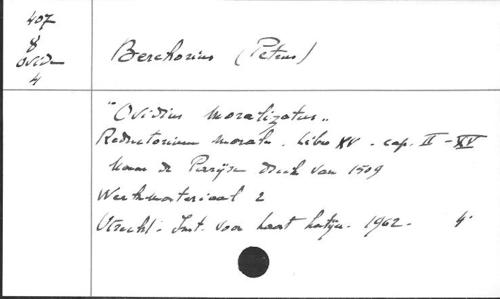 407
8
Ovidi
4
Berchorius (Petrus)
"Ovidius moralizatus"
Reductorium morale. Libro XV. cap. II - XV
Naar de Parijse druk van 1509
Werkmateriaal 2
Utrecht. Inst. voor laat 1962. 4°